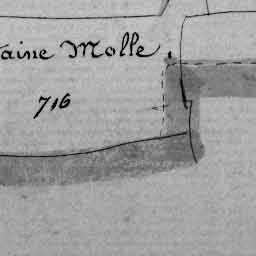 taine Molle.
716